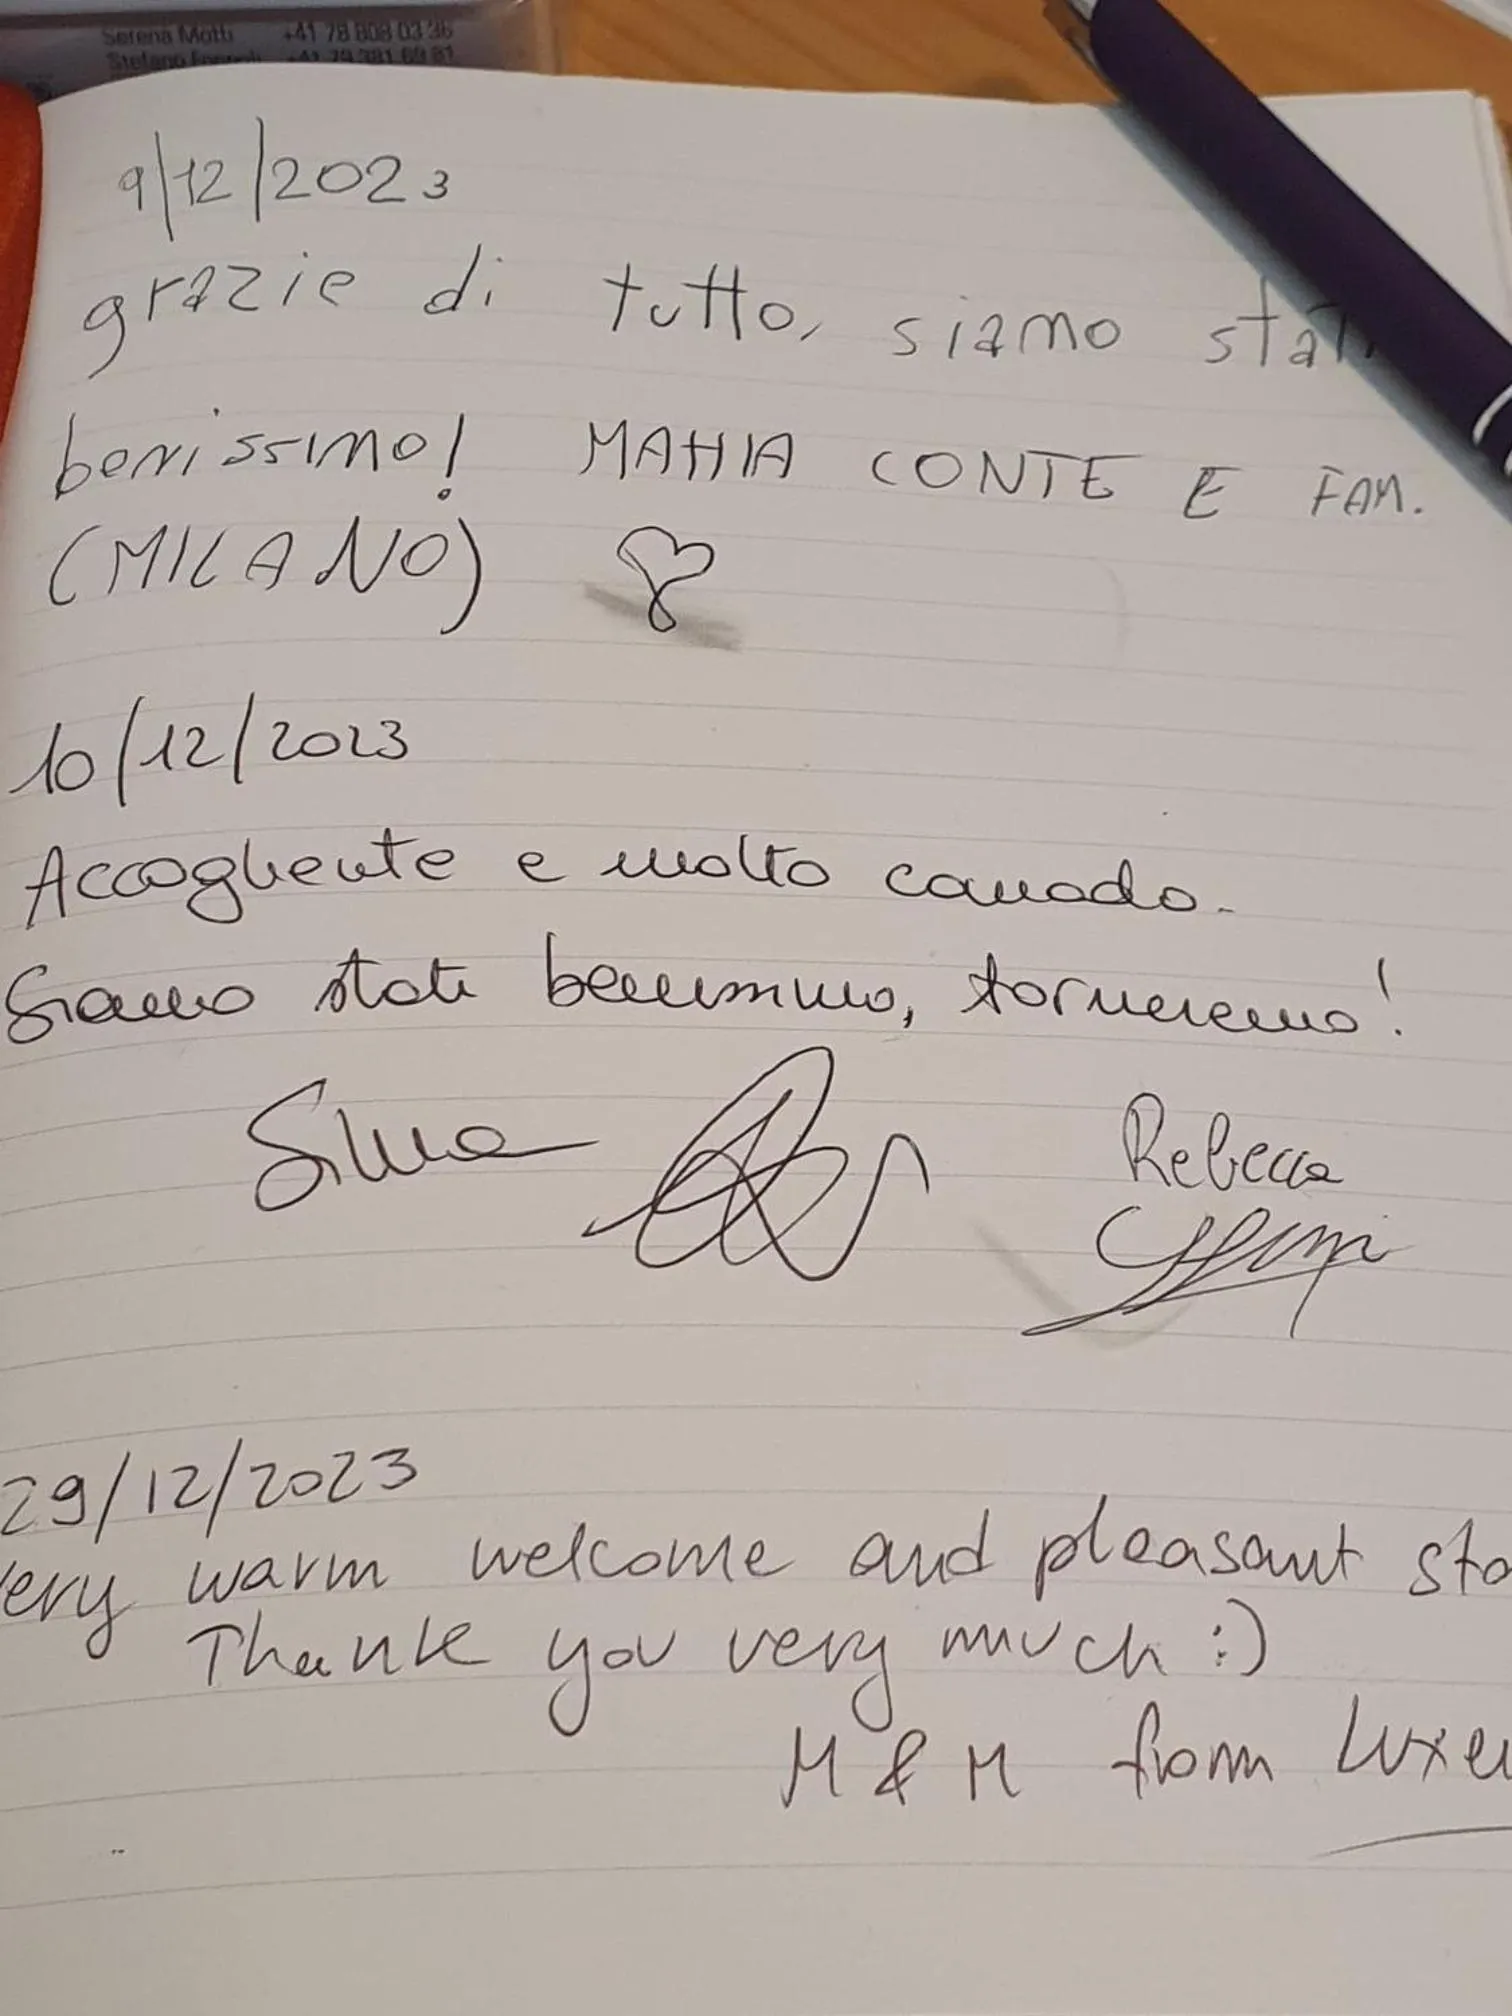 Serena Motti +41 78 808 03 36
Stefano +41 79 381 69 81
9/12/2023
grazie di tutto, siamo stati
benissimo! MAHIA CONTE E FAM.
(MILANO)
10/12/2023
Accogliente e molto comodo.
Siamo stati benissimo, torneremo!
Silvia
Rebecca
29/12/2023
very warm welcome and pleasant sta
Thank you very much :)
M & M from Luxe